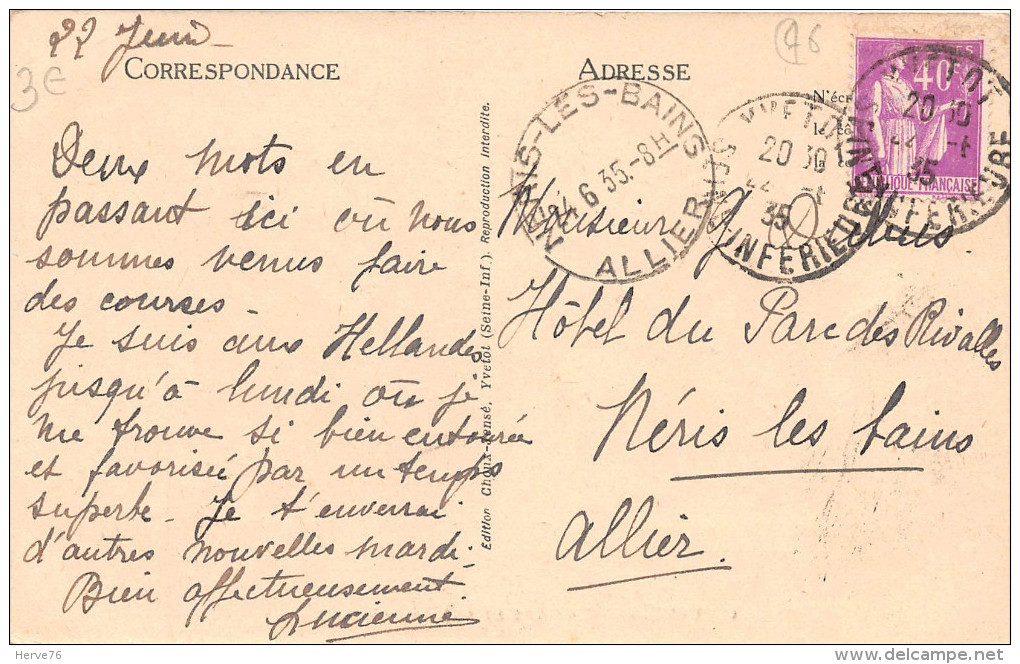 22 Juin
3€
76
CORRESPONDANCE
Deux mots en
passant ici où nous
sommes venus faire
des courses.
Je suis aux Hellandes
jusqu'à lundi où je
me trouve si bien entourée
et favorisée par un temps
superbe. Je t'enverrai
d'autres nouvelles mardi.
Bien affectueusement
Lucienne
Edition Choux-Sensé, Yvetot (Seine-Inf.). Reproduction Interdite.
ADRESSE
N'écr
le cô
la c
NERIS-LES-BAINS
24 6 35.-8H
ALLIER
YVETOT
20 30
22
35
SEINE INFERIEURE
40c
YVETOT
20 30
22
35
SEINE INFERIEURE
REPUBLIQUE FRANÇAISE
Monsieur
Hôtel du Parc des Rivalles
Néris les bains
Allier.
Herve76
delcampe.net